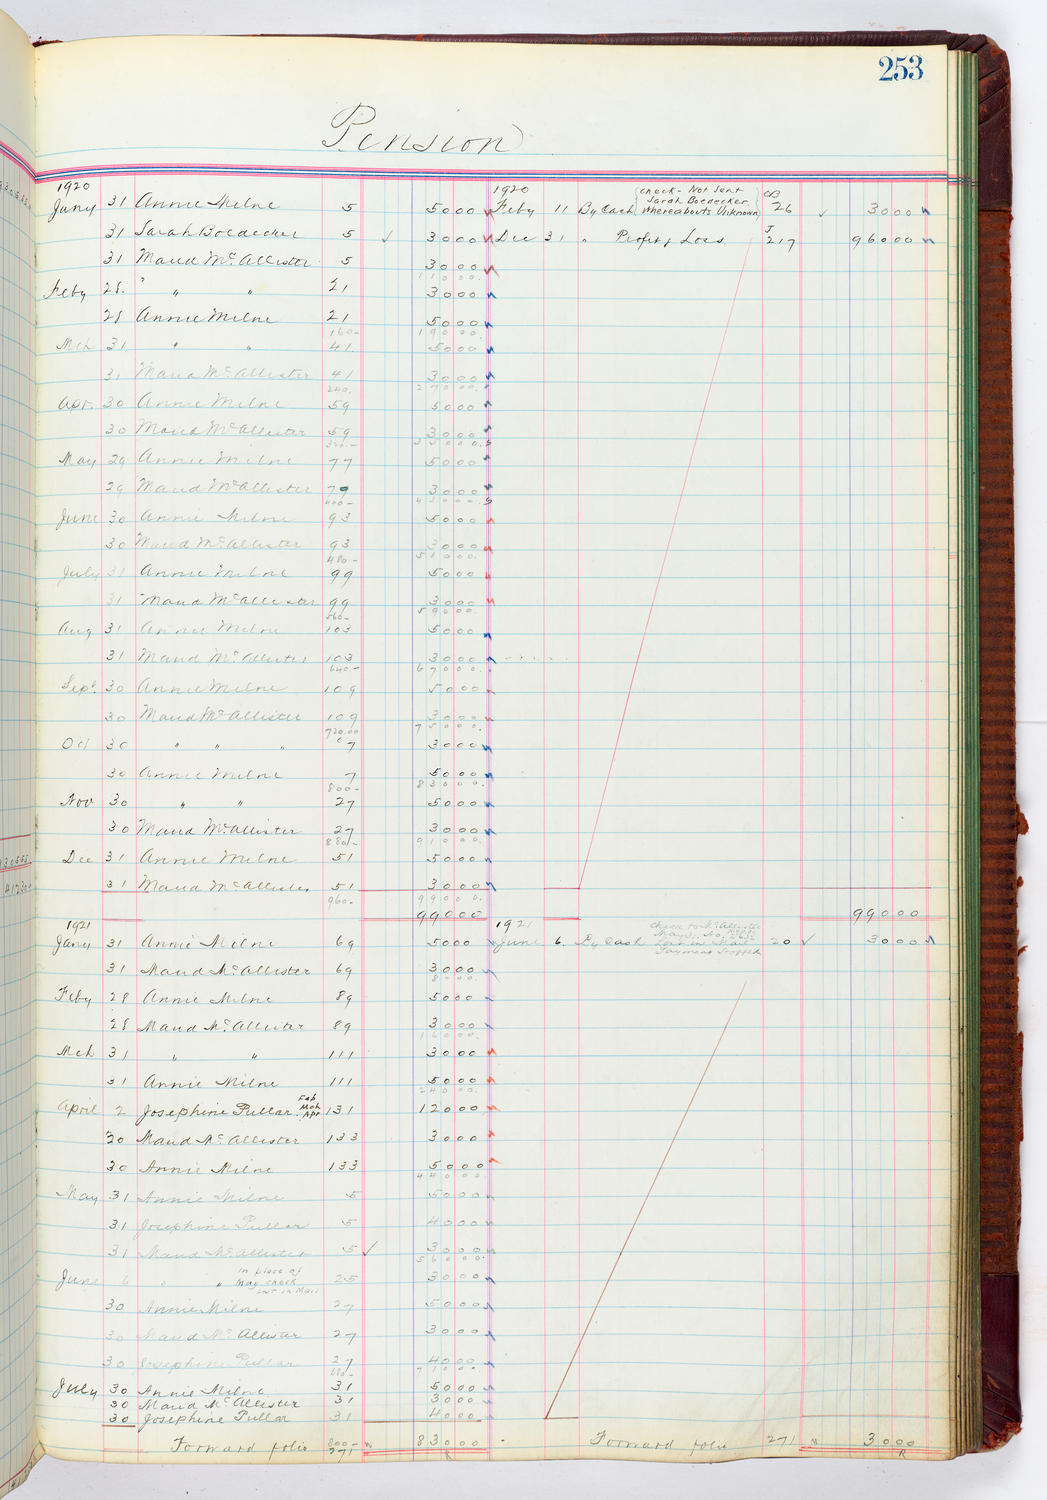 253
Pension
1920 1920
Jany 31 Annie Milne 5 5000 Feby 11 By Cash Check - Not Sent Sarah Boedecker Whereabouts Unknown CB 26 ✓ 3000
31 Sarah Boedecker 5 ✓ 3000 Dec 31 " Profit & Loss. J 217 96000
31 Maud McAllister 5 3000
11000
Feby 28. " " 21 3000
28 Annie Milne 21 5000
160- 19000
Mch 31 " " 41. 5000
31 Maud McAllister 41 3000
240. 27000
Apr. 30 Annie Milne 59 5000
30 Maud McAllister 59 3000
320- 35000
May 29 Annie Milne 77 5000
29 Maud McAllister 79 3000
400- 43000
June 30 Annie Milne 93 5000
30 Maud McAllister 93 3000
480- 51000
July 31 Annie Milne 99 5000
31 Maud McAllister 99 3000
560- 59000
Aug 31 Annie Milne 103 5000
31 Maud McAllister 103 3000
640- 67000
Sept 30 Annie Milne 109 5000
30 Maud McAllister 109 3000
720.00 75000
Oct 30 " " " 7 3000
30 Annie Milne 7 5000
800- 83000
Nov 30 " " 27 5000
30 Maud McAllister 27 3000
880- 91000
Dec 31 Annie Milne 51 5000
31 Maud McAllister 51 3000
960- 99000
99000 99000
1921 1921
Jany 31 Annie Milne 69 5000 June 6. By Cash Lost in Mail Payment Stopped 20 ✓ 3000
31 Maud McAllister 69 3000
8000
Feby 28 Annie Milne 89 5000
28 Maud McAllister 89 3000
16000
Mch 31 " " 111 3000
31 Annie Milne 111 5000
24000
April 2 Josephine Pullar Feb Mch Apr 131 12000
30 Maud McAllister 133 3000
30 Annie Milne 133 5000
44000
May 31 Annie Milne 5 5000
31 Josephine Pullar 5 4000
31 Maud McAllister 5 ✓ 3000
56000
June 6 " " in place of May check lost in Mail 25 3000
30 Annie Milne 27 5000
30 Maud McAllister 27 3000
30 Josephine Pullar 27 4000
71000
July 30 Annie Milne 31 5000
30 Maud McAllister 31 3000
30 Josephine Pullar 31 4000
Forward folio 800- 271 83000 Forward folio 271 3000